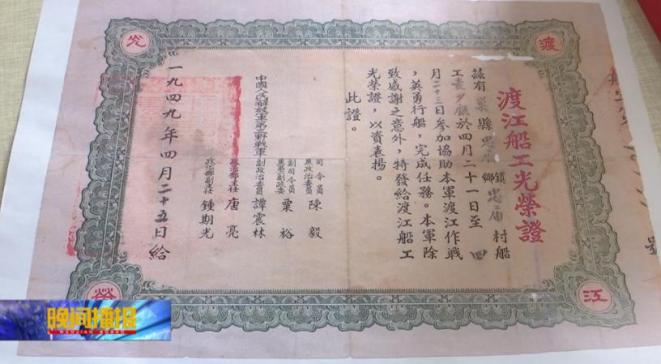 渡江船工光榮證
茲有巢縣
鄉
鎮
村船
工
於四月二十一日至四
月二十三日參加協助本軍渡江作戰
，英勇行船，完成任務。本軍除
致感謝之意外，特發給渡江船工
光榮證，以資表揚。
此證。
中國人民解放軍第三野戰軍
司令員
兼政治委員
陳毅
副司令員
粟裕
副政治委員
譚震林
政治部主任
唐亮
政治部副主任
鍾期光
一九四九年四月二十五日給
渡
江
光
榮
晚间播报